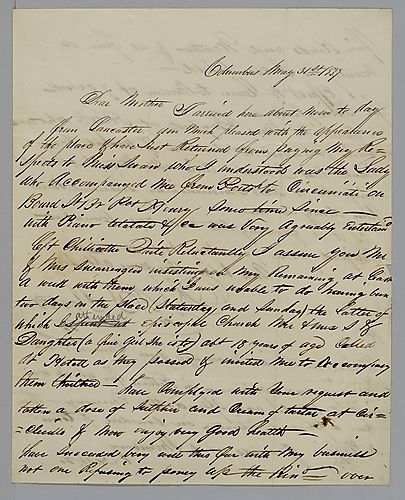 Columbus May 31st 1837
Dear Mother I arrived here about noon to day
from Lancaster, am much pleased with the appearance
of the place & have Just Returned from paying my Re-
spects to Miss Swan who I understood was the Lady
who Accompanied me from to Cincinnati on
Board St Bt Some time Since —
with Piano &c &c was very Agreeably Entertain
left Chillicothe Quite Reluctantly I assure you Mr
& Mrs insisting on My Remaining at
a week with them which I was unable to do having been
two days in the place (Saturday and Sunday) the latter of
which attended Episcopal Church Mr & Mrs S &
Daughter (a fine Girl She is to) abt 15 years of age Called
at Hotel as they passed & invited Me to Accompany
them thither — have Complyed with Your request and
taken a dose of Sulphur and Cream of tartar at
& Now enjoy very Good health —
have Succeeded very well this far with My business
not one Refusing to poney up the over